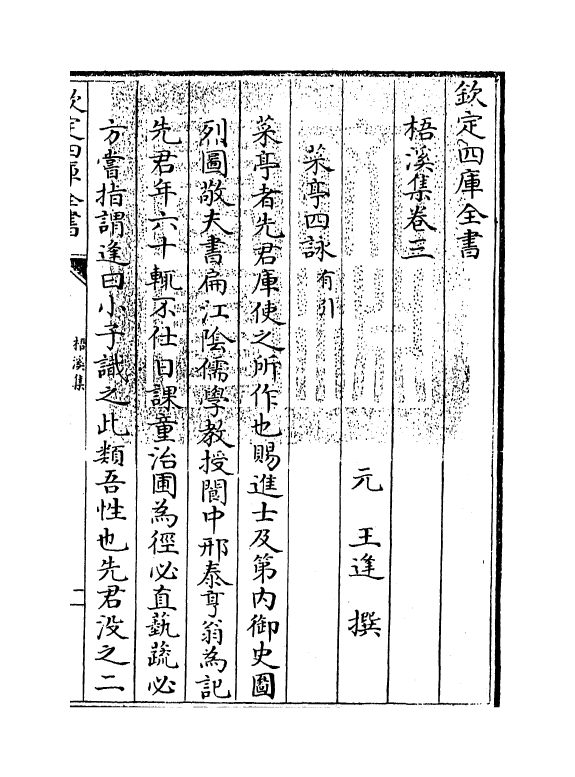 欽定四庫全書
梧溪集卷三
元 王逢 撰
菜亭四詠有引
菜亭者先君庫使之所作也賜進士及第内御史圖
烈圖敬夫書扁江陰儒學教授閬中邢泰亨翁為記
先君年六十輒不仕日課童治圃為徑必直蓺蔬必
方嘗指謂逢曰小子識之此類吾性也先君没之二
欽定四庫全書
梧溪集